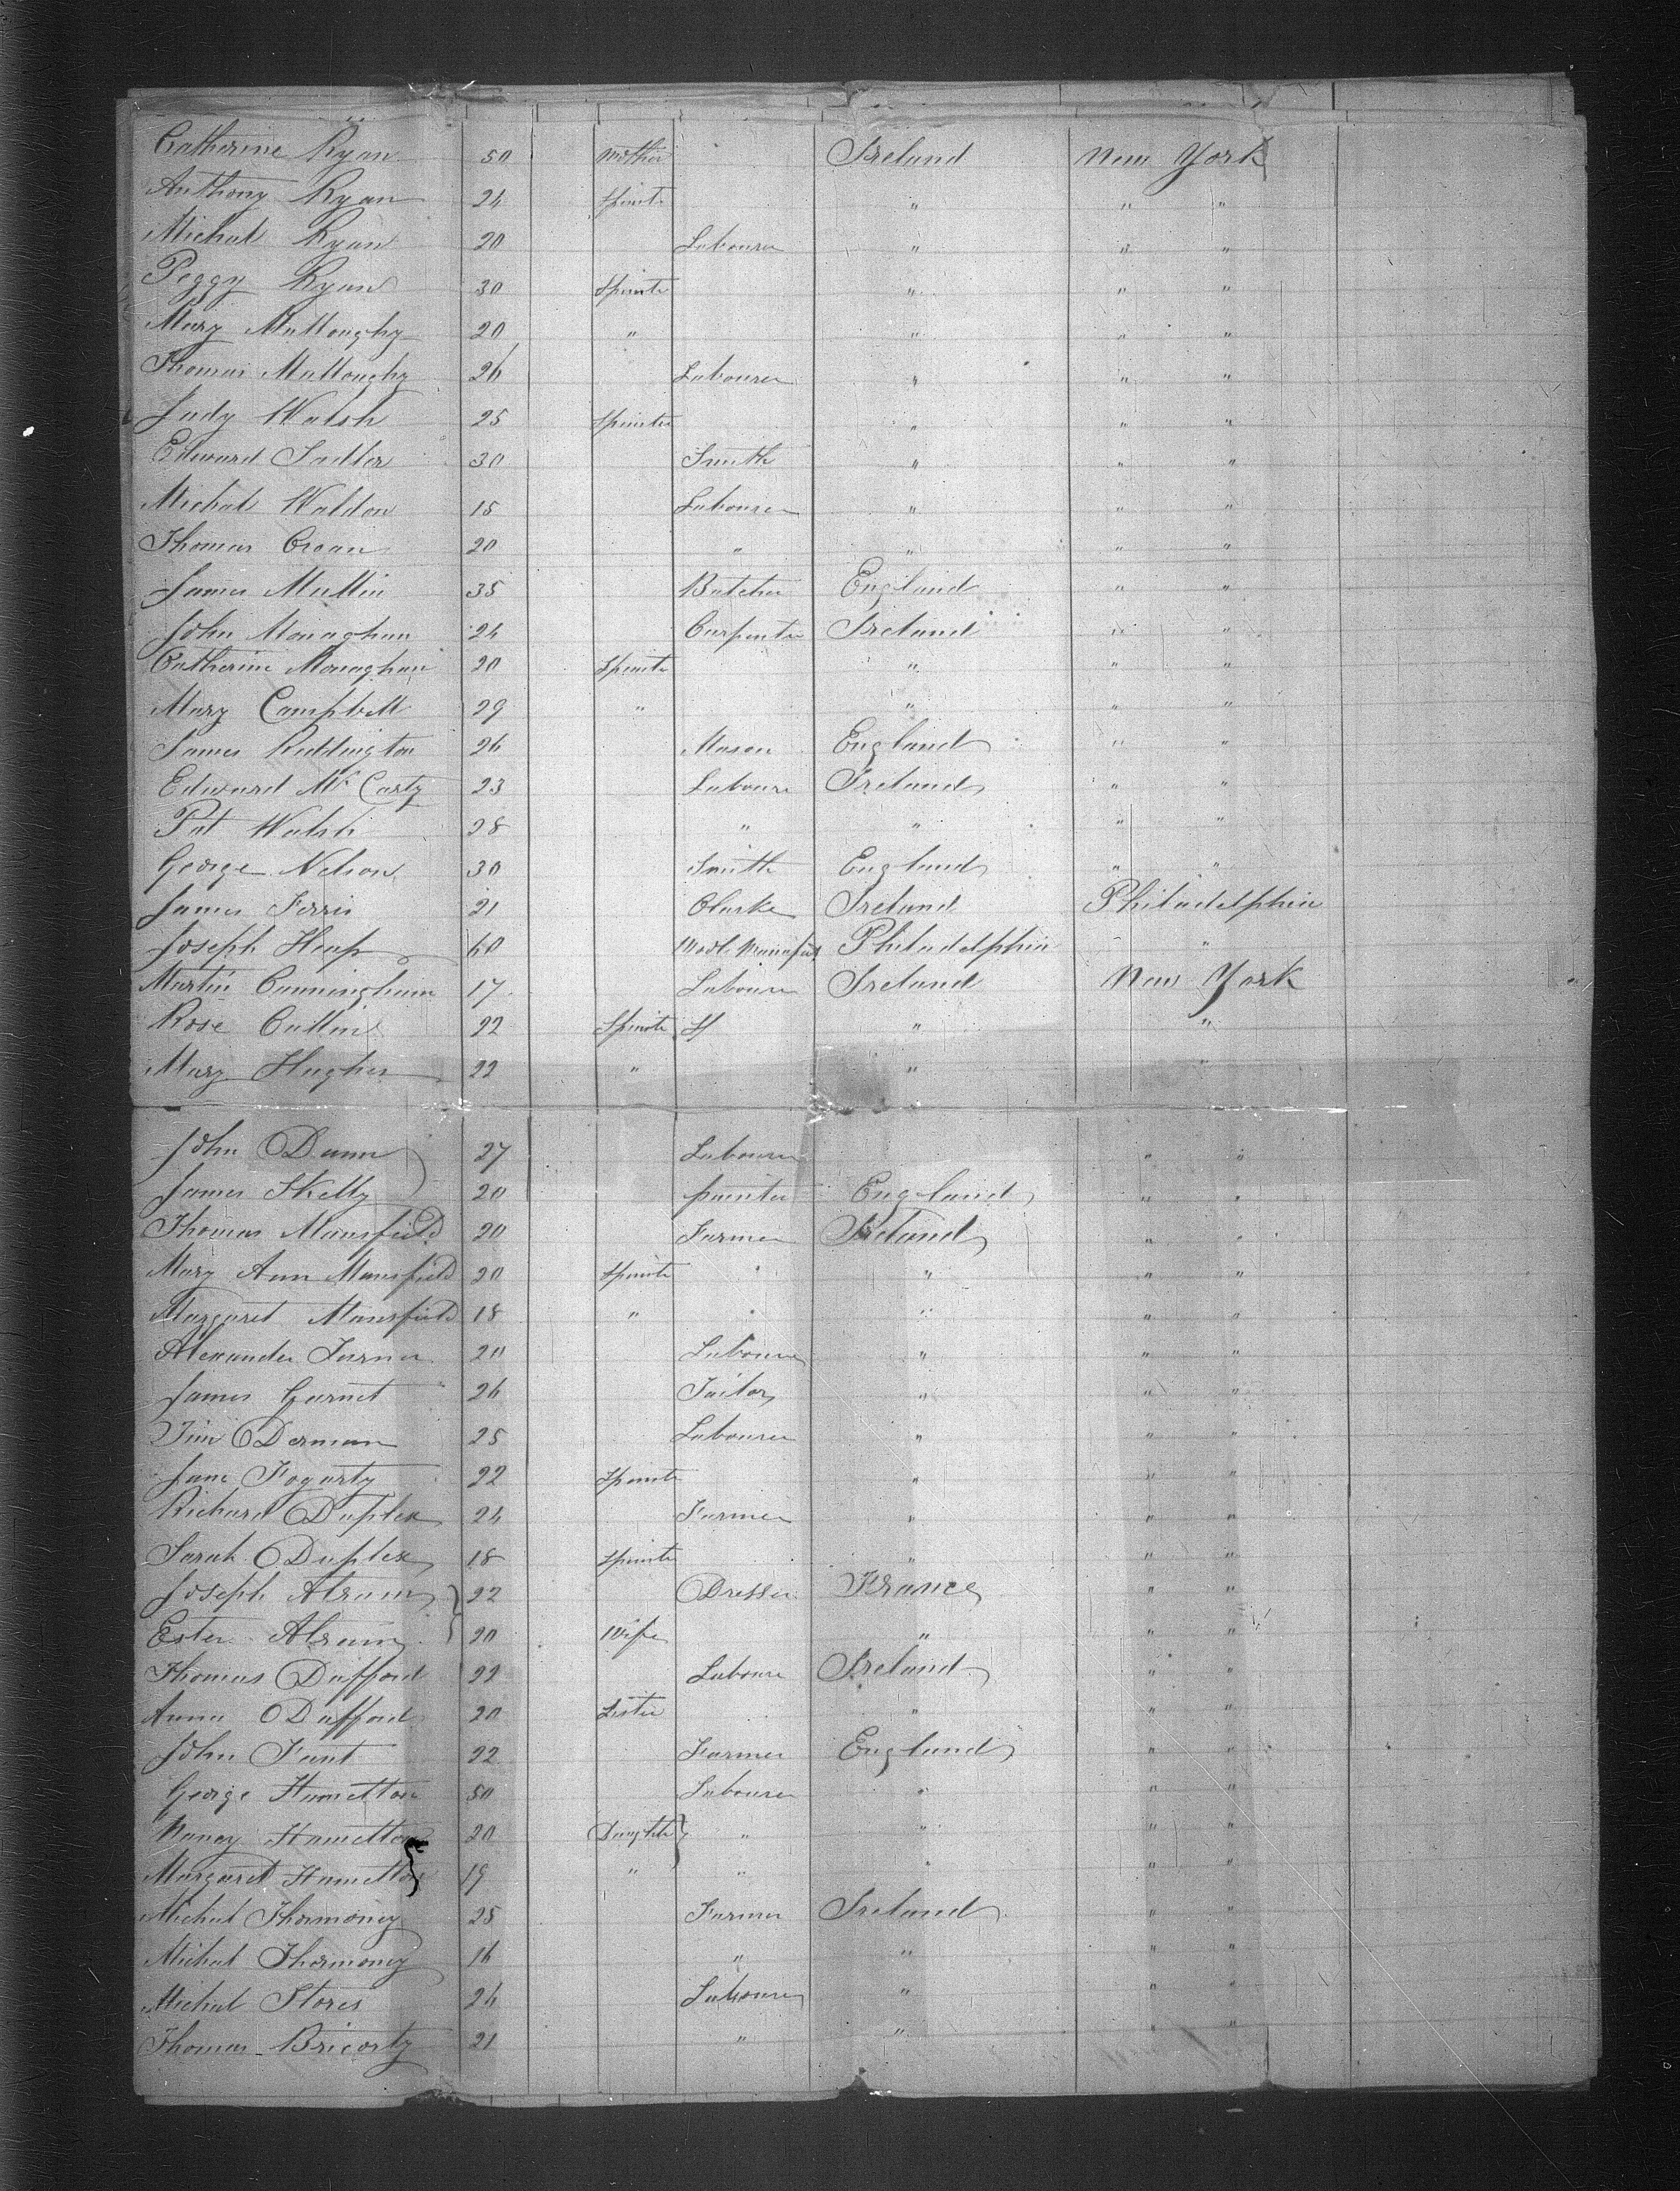 Catherine Ryan 50 mother Ireland New York
Anthony Ryan 24 Spinste " " "
Michal Ryan 20 Labourer " " "
Peggy Ryan 30 Spinste " " "
Mary Mulloughy 20 " " " "
Thomas Mulloughy 26 Labourer " " "
Judy Walsh 25 Spinster " " "
Edward Sadler 30 Smith " " "
Michal Waldon 15 Labourer " " "
Thomas Croan 20 " " " "
James Mullin 35 Butcher England " "
John Monaghan 24 Carpenter Ireland " "
Catherine Monaghan 20 Spinste " " "
Mary Campbell 29 " " " "
James Riddington 26 Mason England " "
Edward Mc Carty 23 Laboure Ireland " "
Pat Walsh 28 " " " "
George Nelson 30 Smith England " "
James Ferris 21 Clarke Ireland Philadelphia
Joseph Heap 60 Philadelphia " "
Martin Cunningham 17 Laboure Ireland New York
Rose Cullins 22 Spinste " "
Mary Hughes 22 " " "
John Dunn 27 Labourer " "
James Skelly 20 painter England " "
Thomas Mansfield 20 Farmer Ireland " "
Mary Ann Mansfield 20 Spinste " " " "
Margaret Mansfield 18 " " " " "
Alexander Turner 20 Labourer " " "
James Garnet 26 Tailor " " "
Tim Derman 25 Labourer " " "
Jane Fogarty 22 Spinste " " "
Richard Duplex 24 Farmer " " "
Sarah Duplex 18 Spinste " " "
Joseph Abram 22 Dresser France " "
Ester Abram 20 Wife " " "
Thomas Dufford 22 Laboure Ireland " "
Anna Dufford 20 Sister " " "
John Fant 22 Farmer England " "
George Hamelton 50 Labourer " " "
Nancy Hamelton 20 Daughte " " " "
Margaret Hamelton 19 " " " " "
Michal Thormoney 25 Farmer Ireland " "
Michal Thormoney 16 " " " "
Michal Stores 26 Labourer " " "
Thomas Bricorty 21 " " " "